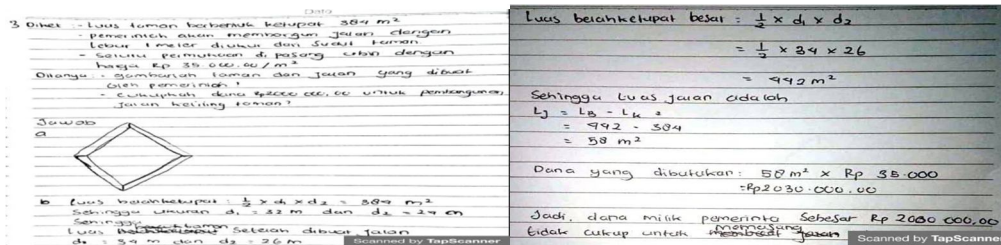 Data
3 Diket :- Luas taman berbentuk ketupat 384 m²
- pemerintah akan membangun jalan dengan
Lebar 1 meter diukur dari sudut taman.
- Seluru permukaan di pasang ubin dengan
harga Rp 35.000.00/m²
Ditanya : - gambarlah taman dan jalan yang dibuat
oleh pemerintah !
- Cukupkah dana 2000 000,00 untuk pembangunan
jalan keliling taman?
Jawab
a
b Luas belahketupat : ½ x d₁ x d₂ = 384 m²
Sehingga ukuran d₁ = 32 m dan d₂ = 24 m
Sehingga
Luas setelah dibuat jalan
d₁ = 34 m dan d₂ = 26 m
Scanned by TapScanner
Luas belahketupat besar = ½ x d₁ x d₂
= ½ x 34 x 26
= 442 m²
Sehingga Luas jalan adalah
LJ = LB - LK =
= 442 - 384
= 58 m²
Dana yang dibutukan : 58 m² x Rp 35.000
=Rp2030.000,00
Jadi, dana milik pemerinta sebesar Rp 2000 000,00
tidak cukup untuk memasang
Scanned by TapScanner